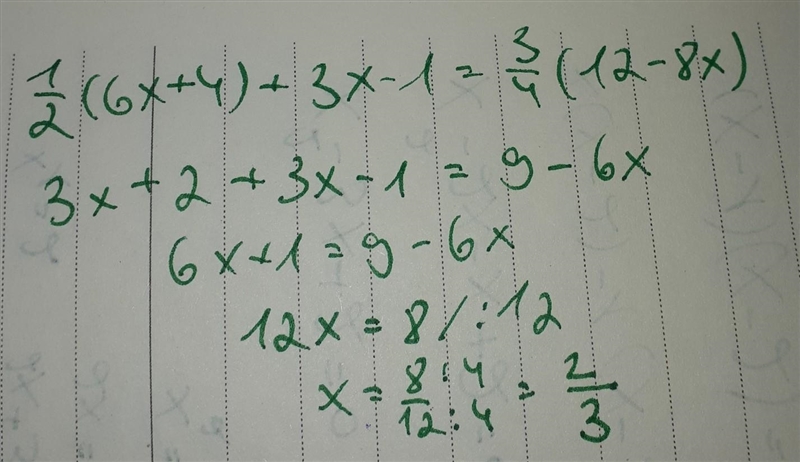 1/2 (6x+4) + 3x-1 = 3/4 (12-8x)
3x+2+3x-1 = 9-6x
6x+1 = 9-6x
12x = 8 /:12
x = 8:4/12:4 = 2/3